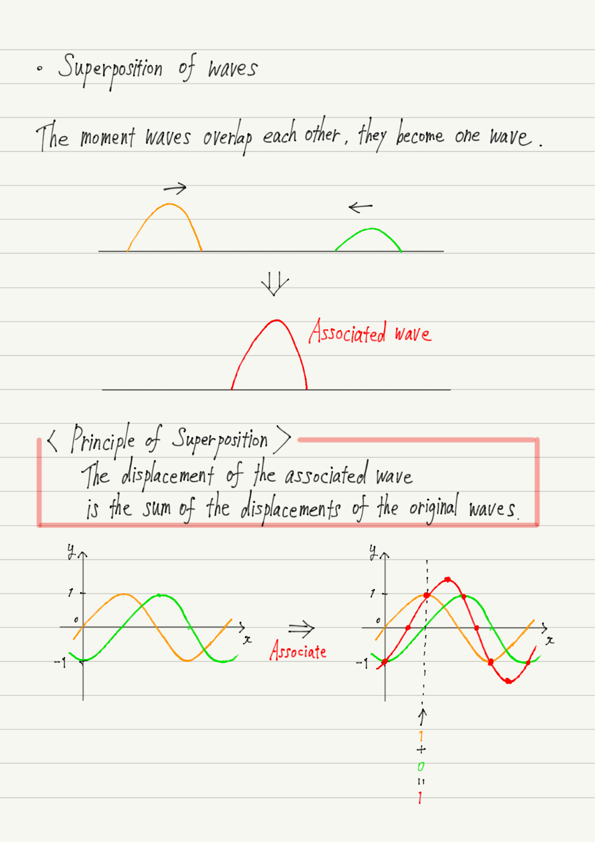 • Superposition of waves
The moment waves overlap each other, they become one wave.
→
←
⇓
Associated wave
< Principle of Superposition >
The displacement of the associated wave
is the sum of the displacements of the original waves.
y
1
0
-1
x
⇒
Associate
y
1
0
-1
x
↑
1
+
0
=
1